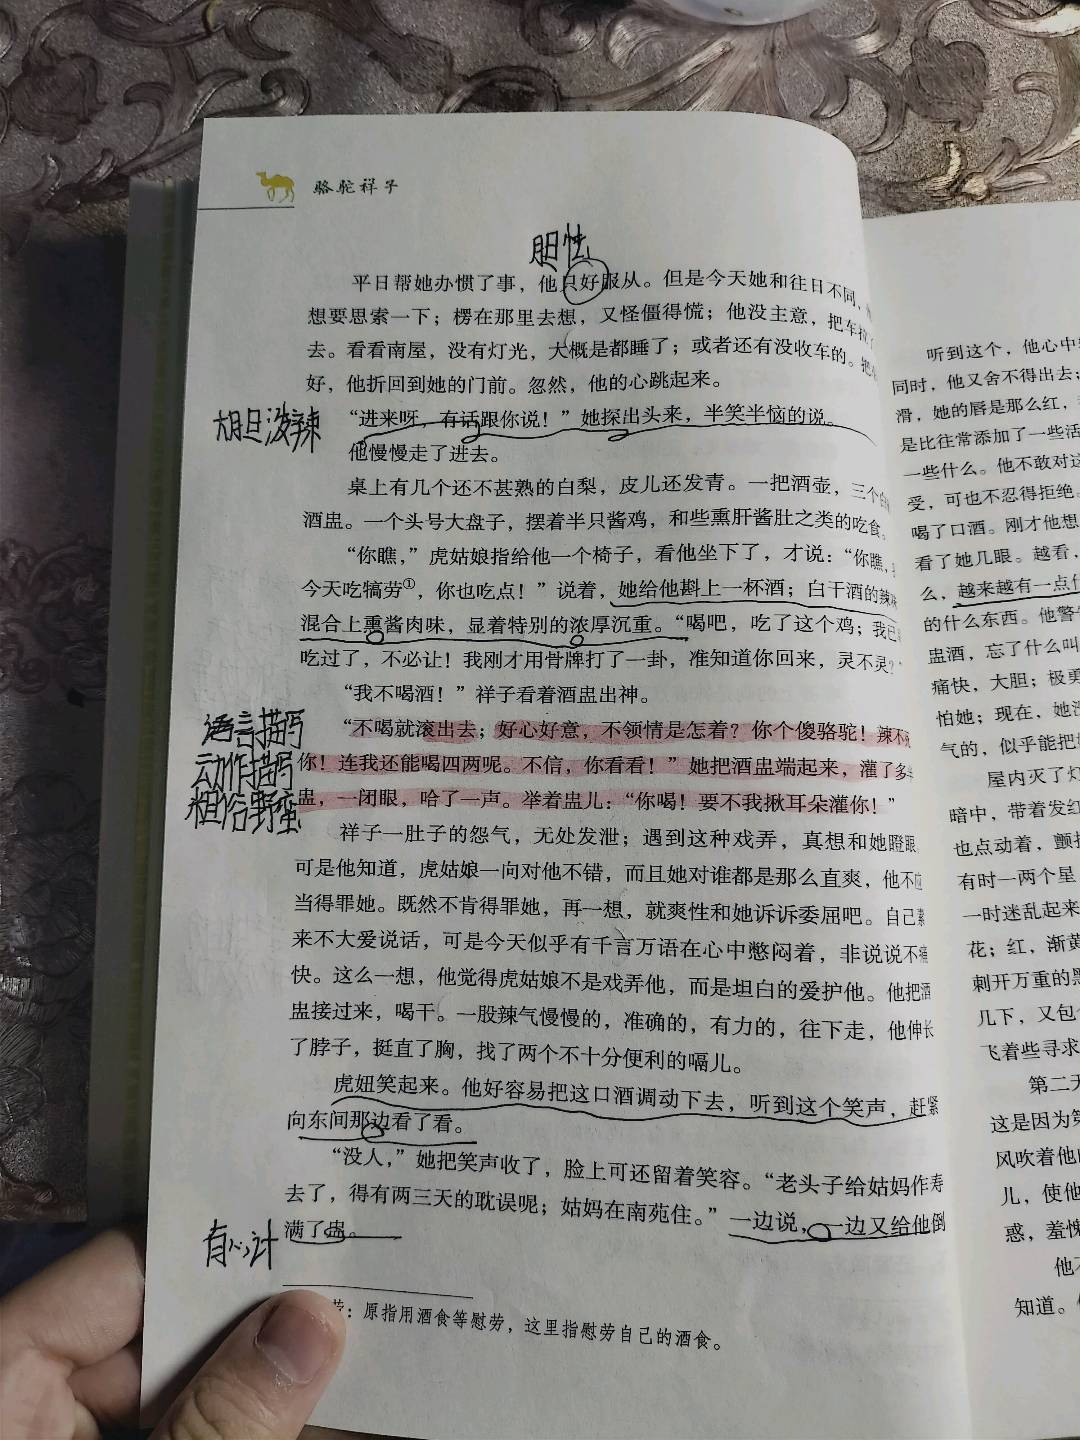 骆驼祥子
胆怯
平日帮她办惯了事，他只好服从。但是今天她和往日不同，
想要思索一下；楞在那里去想，又怪僵得慌；他没主意，把车拉
去。看看南屋，没有灯光，大概是都睡了；或者还有没收车的。把
好，他折回到她的门前。忽然，他的心跳起来。
大胆泼辣
“进来呀，有话跟你说！”她探出头来，半笑半恼的说。
他慢慢走了进去。
桌上有几个还不甚熟的白梨，皮儿还发青。一把酒壶，三个白
酒盅。一个头号大盘子，摆着半只酱鸡，和些熏肝酱肚之类的吃食。
“你瞧，”虎姑娘指给他一个椅子，看他坐下了，才说：“你瞧，
今天吃犒劳①，你也吃点！”说着，她给他斟上一杯酒；白干酒的辣
混合上熏酱肉味，显着特别的浓厚沉重。“喝吧，吃了这个鸡；我已
吃过了，不必让！我刚才用骨牌打了一卦，准知道你回来，灵不灵？”
“我不喝酒！”祥子看着酒盅出神。
语言描写
动作描写
粗俗野蛮
“不喝就滚出去；好心好意，不领情是怎着？你个傻骆驼！辣不死
你！连我还能喝四两呢。不信，你看看！”她把酒盅端起来，灌了多半
盅，一闭眼，哈了一声。举着盅儿：“你喝！要不我揪耳朵灌你！”
祥子一肚子的怨气，无处发泄；遇到这种戏弄，真想和她瞪眼
可是他知道，虎姑娘一向对他不错，而且她对谁都是那么直爽，他不应
当得罪她。既然不肯得罪她，再一想，就爽性和她诉诉委屈吧。自己素
来不大爱说话，可是今天似乎有千言万语在心中憋闷着，非说说不痛
快。这么一想，他觉得虎姑娘不是戏弄他，而是坦白的爱护他。他把酒
盅接过来，喝干。一股辣气慢慢的，准确的，有力的，往下走，他伸长
了脖子，挺直了胸，打了两个不十分便利的嗝儿。
虎妞笑起来。他好容易把这口酒调动下去，听到这个笑声，赶紧
向东间那边看了看。
“没人，”她把笑声收了，脸上可还留着笑容。“老头子给姑妈作寿
去了，得有两三天的耽误呢；姑妈在南苑住。”一边说，一边又给他倒
满了盅。
有心计
劳：原指用酒食等慰劳，这里指慰劳自己的酒食。
听到这个，他心中
同时，他又舍不得出去；
滑，她的唇是那么红，
是比往常添加了一些活
一些什么。他不敢对
受，可也不忍得拒绝。
喝了口酒。刚才他想
看了她几眼。越看，
么，越来越有一点什
的什么东西。他警
盅酒，忘了什么叫
痛快，大胆；极勇
怕她；现在，她
气的，似乎能把
屋内灭了灯
暗中，带着发红
也点动着，颤
有时一两个星
一时迷乱起来
花；红，渐黄
刺开万重的黑
几下，又包
飞着些寻求
第二天
这是因为第
风吹着他
儿，使他
惑，羞愧
他不
知道。